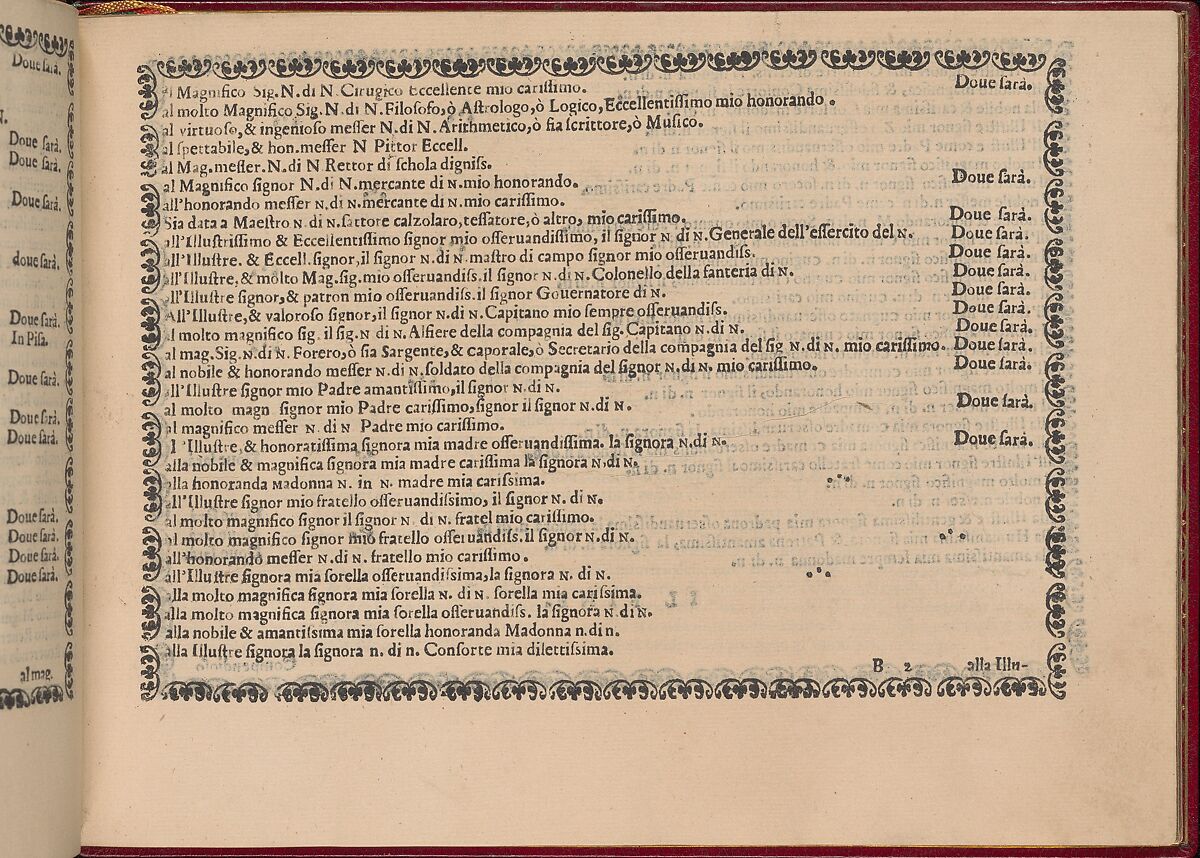 Doue sarà.
N.
Doue sarà.
Doue sarà.
Doue sarà.
doue sarà.
Doue sarà.
In Pisa.
Doue sarà.
Doue sarà.
Doue sarà.
Doue sarà.
Doue sarà.
Doue sarà.
Doue sarà.
al mag.
al Magnifico Sig. N. di N. Cirugico Eccellente mio carissimo. Doue sarà.
al molto Magnifico Sig. N. di N. Filosofo, ò Astrologo, ò Logico, Eccellentissimo mio honorando.
al virtuoso, & ingenioso messer N. di N. Arithmetico, ò sia scrittore, ò Musico.
al spettabile, & hon. messer N Pittor Eccell.
al Mag. messer. N. di N Rettor di schola digniss.
al Magnifico signor N. di N. mercante di N. mio honorando. Doue sarà.
all'honorando messer N. di N. mercante di N. mio carissimo.
Sia data a Maestro N di N. fattore calzolaro, tessatore, ò altro, mio carissimo. Doue sarà.
all'Illustrissimo & Eccellentissimo signor mio osseruandissimo, il signor N di N. Generale dell'essercito del N. Doue sarà.
all'Illustre. & Eccell. signor, il signor N di N. mastro di campo signor mio osseruandiss. Doue sarà.
all'Illustre, & molto Mag. sig. mio osseruandiss. il signor N. di N. Colonello della fanteria di N. Doue sarà.
all'Illustre signor, & patron mio osseruandiss. il signor Gouernatore di N. Doue sarà.
All'Illustre, & valoroso signor, il signor N. di N. Capitano mio sempre osseruandiss. Doue sarà.
al molto magnifico sig. il sig. N di N. Alfiere della compagnia del sig. Capitano N. di N. Doue sarà.
al mag. Sig. N. di N. Forero, ò sia Sargente, & caporale, ò Secretario della compagnia del sig N. di N. mio carissimo. Doue sarà.
al nobile & honorando messer N. di N. soldato della compagnia del signor N. di N. mio carissimo. Doue sarà.
all'Illustre signor mio Padre amantissimo, il signor N. di N.
al molto magn signor mio Padre carissimo, signor il signor N. di N. Doue sarà.
al magnifico messer N. di N Padre mio carissimo.
l'Illustre, & honoratissima signora mia madre osseruandissima. la signora N. di N. Doue sarà.
alla nobile & magnifica signora mia madre carissima la signora N. di N.
alla honoranda Madonna N. in N. madre mia carissima.
all'Illustre signor mio fratello osseruandissimo, il signor N. di N.
al molto magnifico signor il signor N. di N. fratel mio carissimo.
al molto magnifico signor mio fratello osseruandiss. il signor N. di N.
all'honorando messer N. di N. fratello mio carissimo.
all'Illustre signora mia sorella osseruandissima, la signora N. di N.
alla molto magnifica signora mia sorella N. di N. sorella mia carissima.
alla molto magnifica signora mia sorella osseruandiss. la signora N. di N.
alla nobile & amantissima mia sorella honoranda Madonna n. di n.
alla Illustre signora la signora n. di n. Consorte mia dilettissima.
B 2 alla Illu-